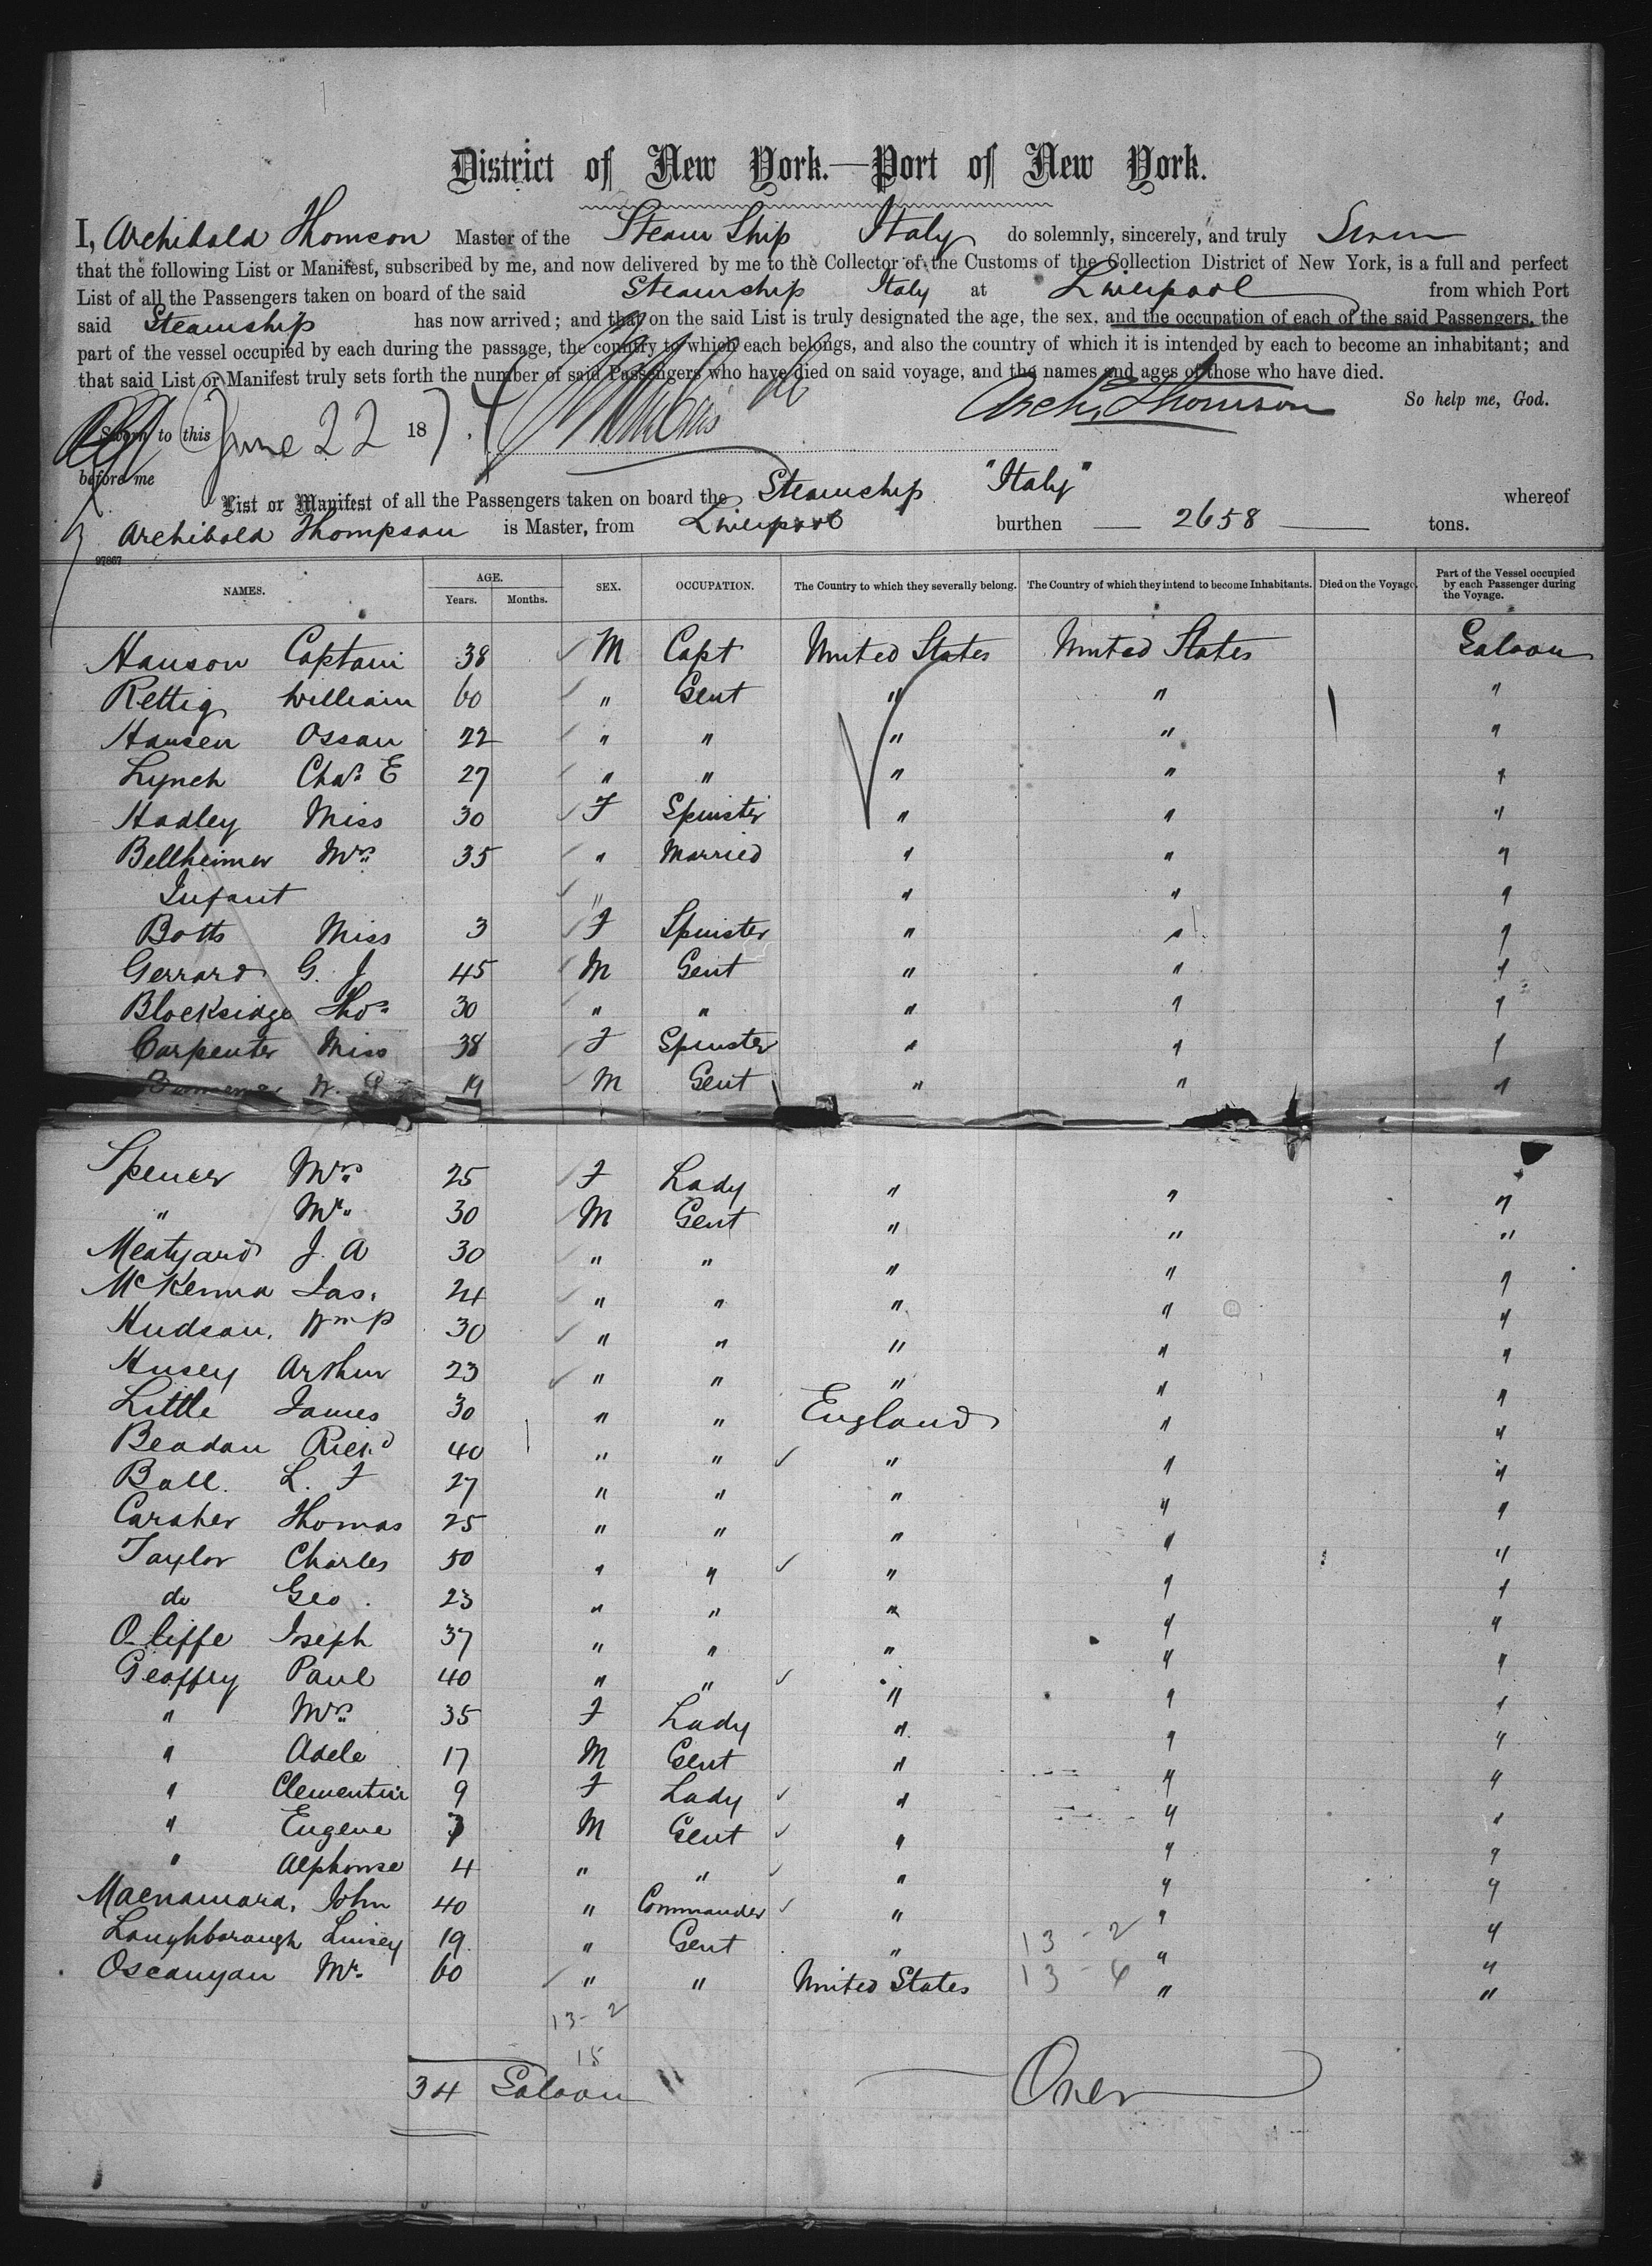 District of New York.—Port of New York.
I, Archibald Thomson Master of the Steam Ship Italy do solemnly, sincerely, and truly Swear
that the following List or Manifest, subscribed by me, and now delivered by me to the Collector of the Customs of the Collection District of New York, is a full and perfect
List of all the Passengers taken on board of the said Steamship Italy at Liverpool from which Port
said Steamship has now arrived; and that on the said List is truly designated the age, the sex, and the occupation of each of the said Passengers, the
part of the vessel occupied by each during the passage, the country to which each belongs, and also the country of which it is intended by each to become an inhabitant; and
that said List or Manifest truly sets forth the number of said Passengers who have died on said voyage, and the names and ages of those who have died.
So help me, God.
Sworn to this June 22 1874. Archd. Thomson
before me
List or Manifest of all the Passengers taken on board the Steamship "Italy" whereof
Archibald Thompson is Master, from Liverpool burthen — 2658 — tons.
97867
NAMES. AGE. Years. Months. SEX. OCCUPATION. The Country to which they severally belong. The Country of which they intend to become Inhabitants. Died on the Voyage. Part of the Vessel occupied by each Passenger during the Voyage.
Hanson Captain 38 M Capt United States United States Saloon
Rettig William 60 " Gent " " "
Hansen Ossan 22 " " " " "
Lynch Chas. E 27 " " " " "
Hadley Miss 30 F Spinster " " "
Bellheimer Mrs. 35 " Married " " "
Infant " " " "
Botts Miss 3 F Spinster " " "
Gerrard G. J 45 M Gent " " "
Blocksidge Thos 30 " " " " "
Carpenter Miss 38 F Spinster " " "
W. G 19 M Gent " " "
Spencer Mrs. 25 F Lady " " "
" Mr. 30 M Gent " " "
Meatyard J. A 30 " " " " "
McKenna Jas. 24 " " " " "
Hudson, Wm P 30 " " " " "
Husey Arthur 23 " " " " "
Little James 30 " " England " "
Beadan Richd 40 " " " " "
Ball. L. F 27 " " " " "
Caraher Thomas 25 " " " " "
Taylor Charles 50 " " " " "
do Geo. 23 " " " " "
O'liffe Joseph 37 " " " " "
Geoffry Paul 40 " " " " "
" Mrs. 35 F Lady " " "
" Adele 17 M Gent " " "
" Clementin 9 F Lady " " "
" Eugene 7 M Gent " " "
" Alphonse 4 " " " " "
Macnamara, John 40 " Commander " " "
Loughborough Linsey 19 " Gent " 13-2 " "
Oscanyan Mr. 60 " " United States 13-4 " "
13-2
15
34 Saloon Over